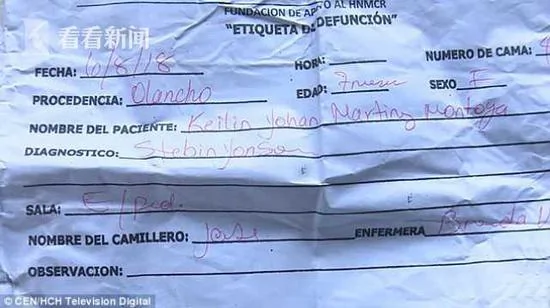 看看新闻
FUNDACION DE APOYO AL HNMCR
"ETIQUETA DE DEFUNCIÓN"
NUMERO DE CAMA: 4
FECHA: 6/8/18 HORA: EDAD: 7 SEXO: F
PROCEDENCIA: Olancho
NOMBRE DEL PACIENTE: Keilin Yohan Martinz Montoya
DIAGNOSTICO: Stebin Yonson
SALA: E/Ped.
NOMBRE DEL CAMILLERO: Jose ENFERMERA Brenda
OBSERVACION:
© CEN/HCH Television Digital